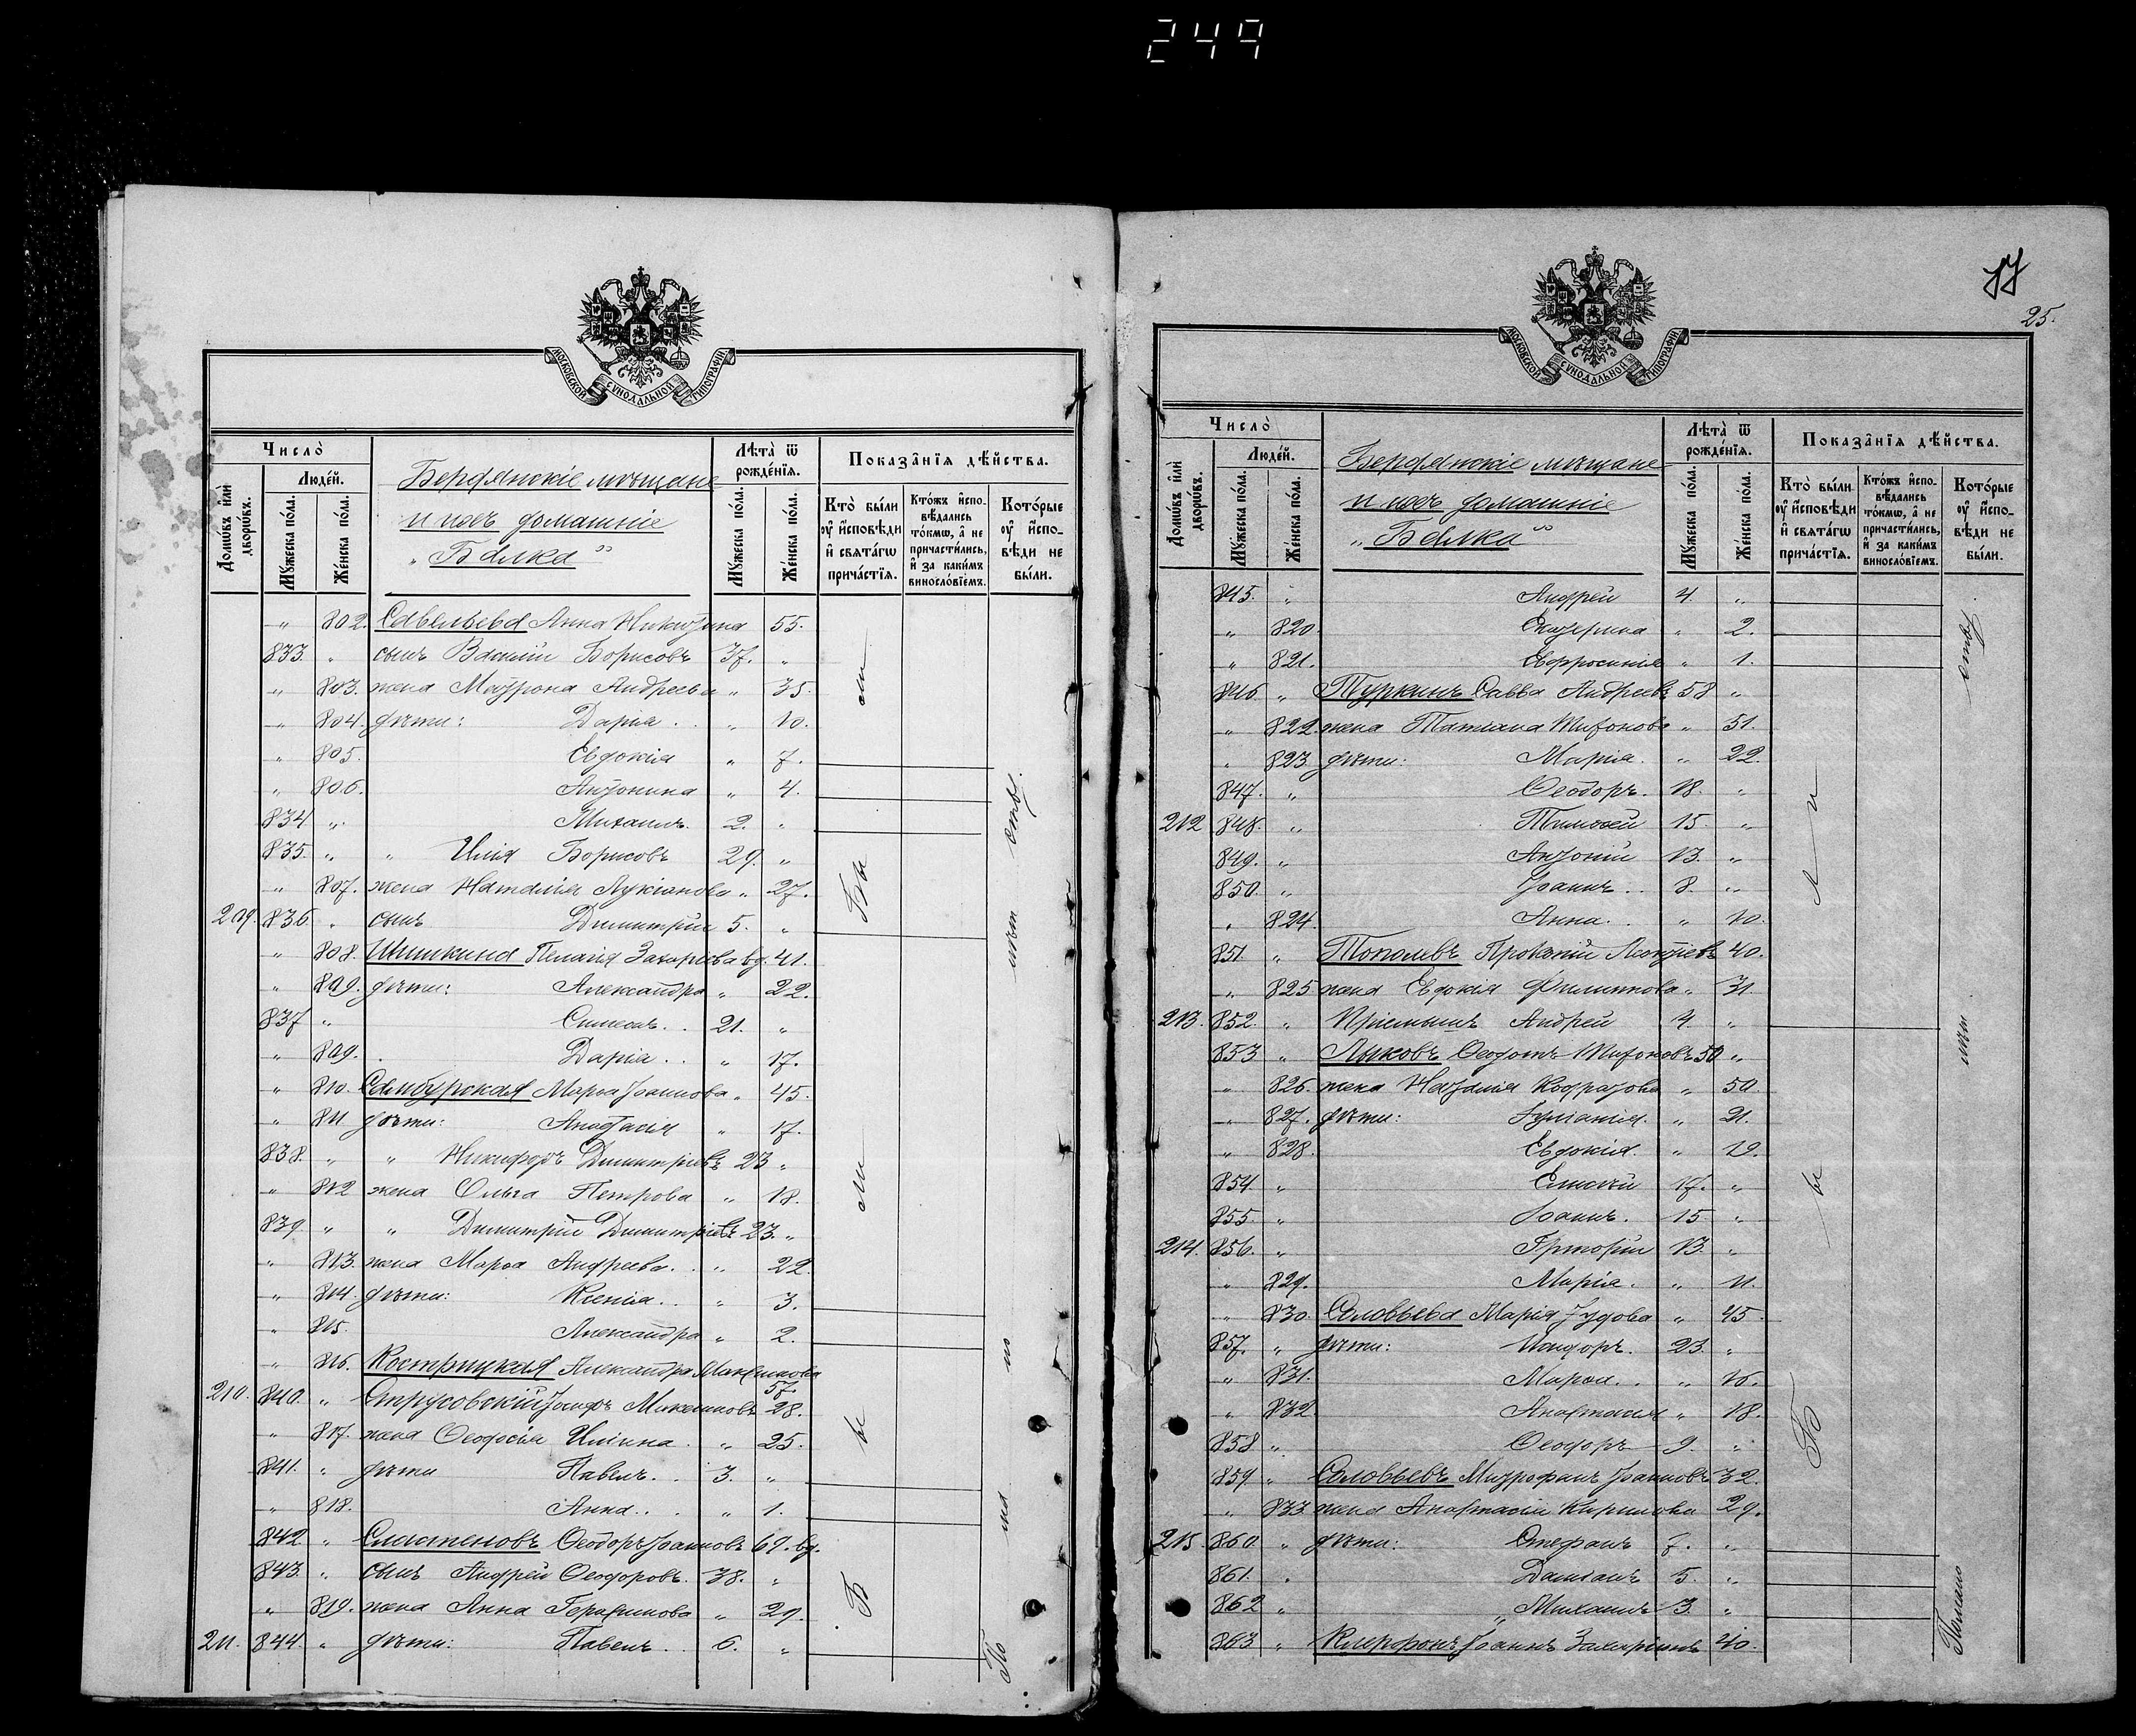 249
МОСКОВСКОЙ СѴНОДАЛЬНОЙ ТИПОГРАФІИ
Число̀
Людéй.
Домѡвъ и҆лѝ дворѡвъ.
Мꙋжеска по́ла.
Же́нска по́ла.
Бердянскіе мѣщане
и ихъ домашніе
„Балка“
Лѣта̀ ѿ рожде́нїѧ.
Мꙋжеска по́ла.
Же́нска по́ла.
Показа̂нїѧ дѣ́йства.
Кто̀ бы́ли ᲂу҆ и҆сповѣди и҆ свѧта́гѡ прича́стїѧ.
Кто́жъ и҆спо-вѣдались то́кмѡ, а҆ не причасти́лись, и҆ за каки́мъ винослóвїемъ.
Кото́рые ᲂу҆ и҆спо-вѣди не бы́ли.
„ 802. Савельева Анна Никитина 55.
833. „ сынъ Василій Борисовъ 37. „
„ 803. жена Матрона Андреева „ 35.
„ 804. дѣти: Дарія „ 10.
„ 805. Евдокія „ 7.
„ 806. Антонина „ 4.
834 „ Михаилъ. 2. „
835. „ „ Илія Борисовъ 29. „
„ 807. жена Наталія Лукіанова „ 27.
209. 836 „ сынъ Димитрій 5. „
„ 808. Шишкина Пелагія Захаріева вд. 41.
„ 809. дѣти: Александра „ 22.
837 „ Симеонъ. 21. „
„ 809. Дарія „ 17.
„ 810. Самбурская Марѳа Іоаннова „ 45.
„ 811 дѣти: Анастасія „ 17.
838. „ „ Никифоръ Димитріевъ 23 „
„ 812 жена Ольга Петрова „ 18.
839. „ „ Димитрій Димитріевъ 23. „
„ 813. жена Марѳа Андреева. „ 22
„ 814. дѣти: Ксенія. „ 3.
„ 815. Александра „ 2.
„ 816. Кострицкая Александра Максимова 57.
210. 840. „ Струсовскій Іосифъ Максимовъ 28.
„ 817. жена Ѳеодосія Иліина. „ 25.
841. „ дѣти Павелъ. 3. „
„ 818. Анна. „ 1.
842 „ Сластеновъ Ѳеодоръ Іоанновъ 69. вд.
843. „ сынъ Андрей Ѳеодоровъ. 38. „
„ 819. жена Анна Герасимова „ 29.
211. 844. „ дѣти: Павелъ 6. „
Б ы ли
Бы ли
По
77
25.
МОСКОВСКОЙ СѴНОДАЛЬНОЙ ТИПОГРАФІИ
Число̀
Людéй.
Домѡвъ и҆лѝ дворѡвъ.
Мꙋжеска по́ла.
Же́нска по́ла.
Бердянскіе мѣщане
и ихъ домашніе
„Балка“
Лѣта̀ ѿ рожде́нїѧ.
Мꙋжеска по́ла.
Же́нска по́ла.
Показа̂нїѧ дѣ́йства.
Кто̀ бы́ли ᲂу҆ и҆сповѣди и҆ свѧта́гѡ прича́стїѧ.
Кто́жъ и҆спо-вѣдались то́кмѡ, а҆ не причасти́лись, и҆ за каки́мъ винослóвїемъ.
Кото́рые ᲂу҆ и҆спо-вѣди не бы́ли.
845. „ Андрей 4. „
„ 820. Екатерина „ 2.
„ 821. Евфросинія „ 1.
846 „ Туркинъ Савва Андреевъ 58 „
„ 822 жена Татіана Тихонова „ 51.
„ 823 дѣти: Марія. „ 22.
847. „ Ѳеодоръ. 18. „
212 848. „ Тимоѳей 15. „
849. „ Антоній 13. „
850. „ Іоаннъ 8. „
„ 824. Анна. „ 10.
851. „ Тополевъ Прокопій Леонтіевъ 40.
„ 825 жена Евдокія Филиппова „ 31.
213. 852. „ Пріемышъ Андрей 4. „
853 „ Лыковъ Ѳеодотъ Тихоновъ 50 „
„ 826. жена Наталія Кодратова „ 50.
„ 827. дѣти: Іуліанія. „ 21.
„ 828. Евдокія. „ 19.
854. „ Елисей 17. „
855. „ Іоаннъ. 15 „
214. 856. „ Григорій 13. „
„ 829. Марія. „ 11.
„ 830. Соловьева Марія Іудова „ 45.
857. „ дѣти: Исидоръ. 23. „
„ 831. Марѳа. „ 16.
„ 832. Анастасія „ 18.
858 „ Ѳеодоръ 9. „
859 „ Соловьевъ Митрофанъ Іоанновъ 32.
„ 833 жена Анастасія Кирилова 29.
215. 860. „ дѣти: Стефанъ 7. „
861. „ Даміанъ 5. „
862 „ Михаилъ 3. „
863 „ Іоаннъ Захаріинъ 40.
Б ы ли